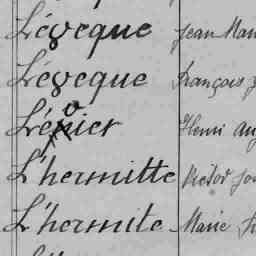 Léveque Jean Mar
Léveque François
Lévier Henri Au
L'hermitte Victor Jos
L'hermite Marie